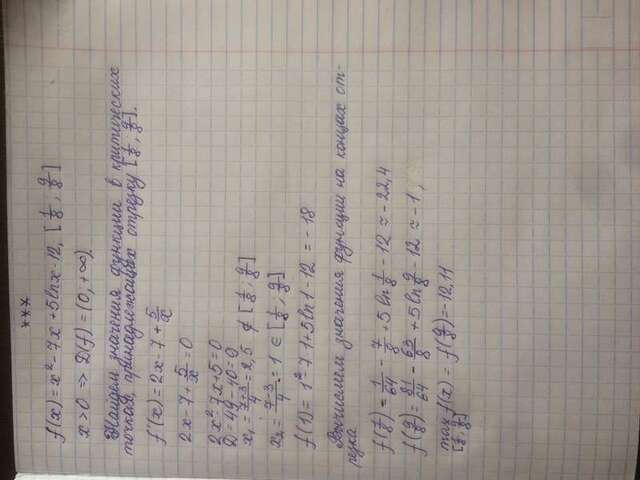 ***
f(x) = x² - 7x + 5lnx - 12, [1/8 ; 9/8]
x > 0 => D(f) = (0, +∞)
Найдем значения функции в критических
точках, принадлежащих отрезку [1/8 ; 9/8].
f'(x) = 2x - 7 + 5/x
2x - 7 + 5/x = 0
2x² - 7x + 5 = 0
D = 49 - 40 = 9
x₁ = (7+3)/4 = 2,5 ∉ [1/8 ; 9/8]
x₂ = (7-3)/4 = 1 ∈ [1/8 ; 9/8]
f(1) = 1² - 7·1 + 5 ln 1 - 12 = -18
Вычислим значения функции на концах от-
резка
f(1/8) = 1/64 - 7/8 + 5 ln 1/8 - 12 ≈ -22,4
f(9/8) = 81/64 - 63/8 + 5 ln 9/8 - 12 ≈ -1,
max f(x) = f(9/8) = -12,11
[1/8 ; 9/8]